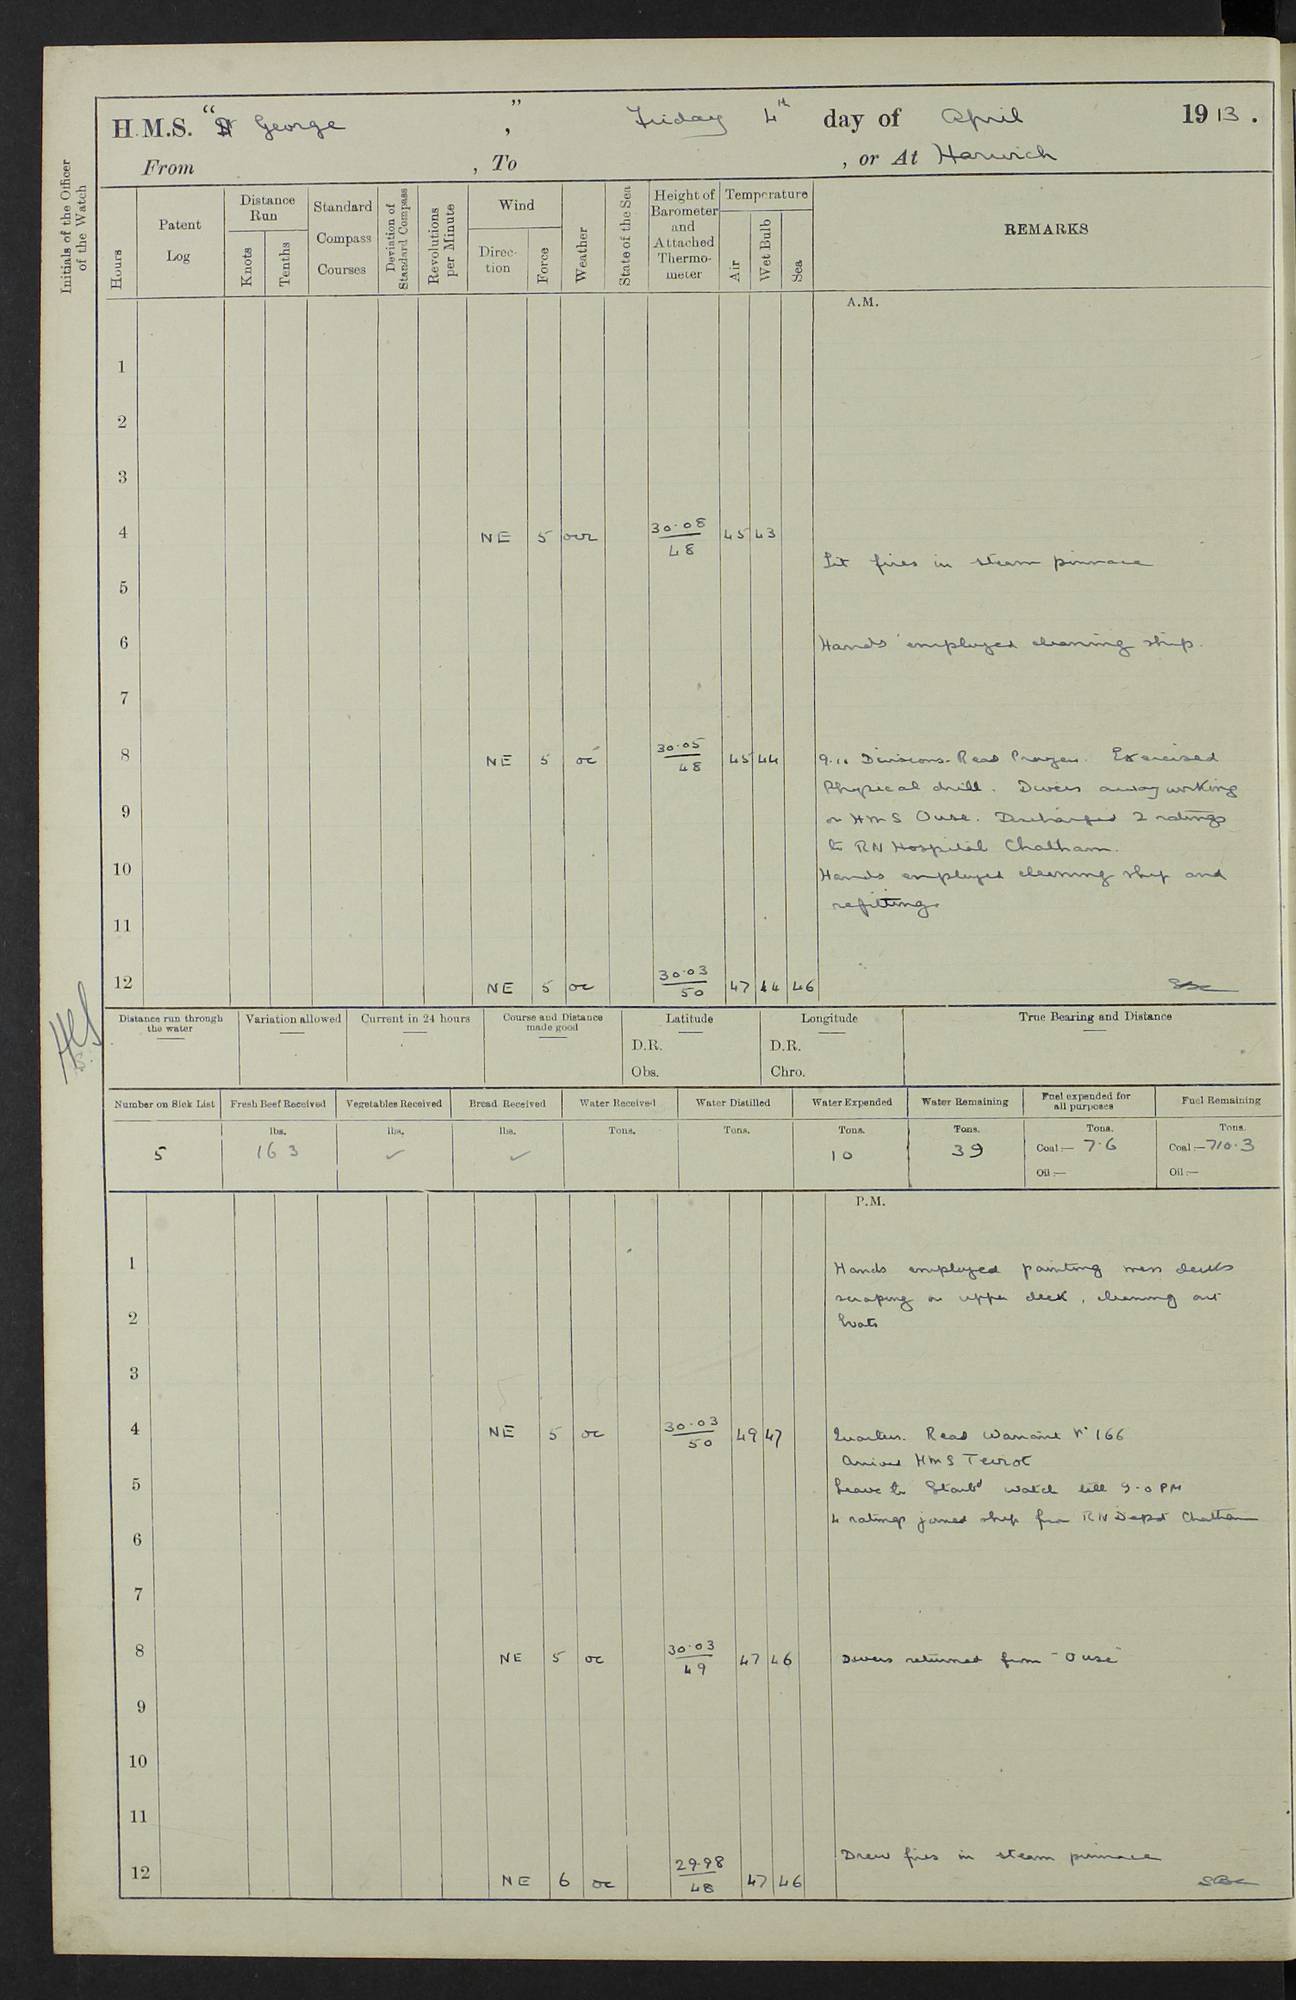 H.M.S. "St George", Friday 4th day of April 1913.
From , To , or At Harwich
Initials of the Officer of the Watch
Hours
Patent Log
Distance Run
Knots
Tenths
Standard Compass Courses
Deviation of Standard Compass
Revolutions per Minute
Wind
Direction
Force
Weather
State of the Sea
Height of Barometer and Attached Thermometer
Temperature
Air
Wet Bulb
Sea
REMARKS
A.M.
1
2
3
4 NE 5 30.08 48 45 43
Lit fires in steam pinnace
5
6 Hands employed cleaning ship.
7
8 NE 5 oc 30.05 48 45 44 Divisions. Read Prayers. Exercised
Physical drill. Divers away working
9 on HMS Ouse. Discharged 2 ratings
to RN Hospital Chatham.
10 Hands employed cleaning ship and
refitting
11
12 NE 5 oc 30.03 50 47 44 46
Distance run through the water
Variation allowed
Current in 24 hours
Course and Distance made good
Latitude
D.R.
Obs.
Longitude
D.R.
Chro.
True Bearing and Distance
Number on Sick List
5
Fresh Beef Received
lbs.
163
Vegetables Received
lbs.
✓
Bread Received
lbs.
✓
Water Received
Tons.
Water Distilled
Tons.
Water Expended
Tons.
10
Water Remaining
Tons.
39
Fuel expended for all purposes
Tons.
Coal:— 7.6
Oil:—
Fuel Remaining
Tons.
Coal:— 710.3
Oil:—
P.M.
1 Hands employed painting mess decks
scraping on upper deck, cleaning out
2 boats
3
4 NE 5 oc 30.03 50 49 47 Quarters. Read Warrant No 166
Arrived HMS Teviot
5 Leave to Starbd watch till 9.0 PM
4 ratings joined ship from RN Depot Chatham
6
7
8 NE 5 oc 30.03 49 47 46 Divers returned from "Ouse"
9
10
11
Drew fires in steam pinnace
12 NE 6 oc 29.98 48 47 46